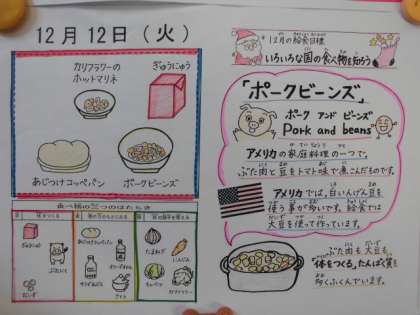 12月12日（火）
カリフラワーの
ホットマリネ
ぎゅうにゅう
あじつけコッペパン
ポークビーンズ
食べ物の三つのはたらき
ぎゅうにゅう
ぶたにく
だいず
あじつけコッペパン
さとう
たまねぎ
にんじん
キャベツ
カリフラワー
12月の給食目標
いろいろな国の食べ物を知ろう
「ポークビーンズ」
ポーク アンド ビーンズ
Pork and beans
アメリカの家庭料理の一つで、
ぶた肉と豆をトマト味で煮こんだものです。
アメリカでは、白いんげん豆を
使う事が多いです。給食では
大豆を使って作っています。
ぶた肉も大豆も、
"体をつくる"たんぱく質を
多くふくんでいます。